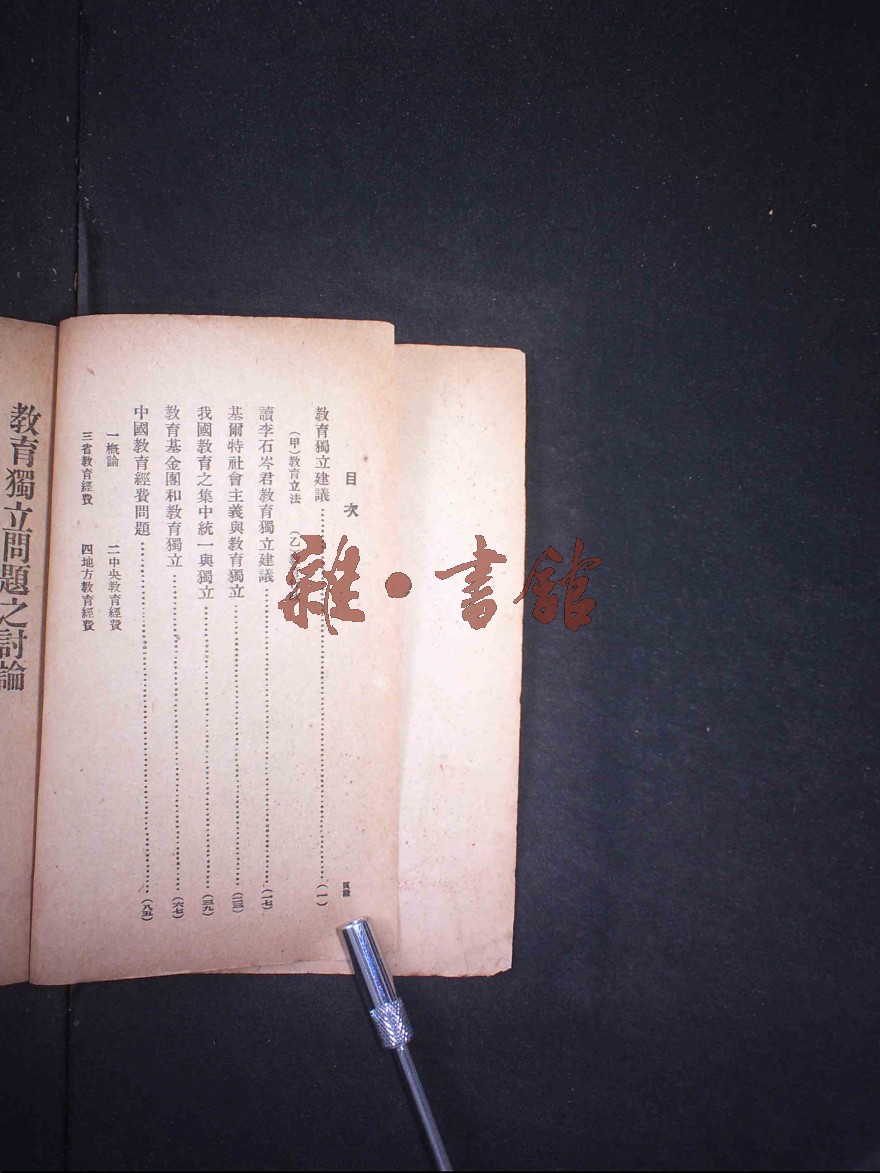 目次
頁數
教育獨立建議……(一)
(甲)教育立法 (乙)
讀李石岑君教育獨立建議……(一七)
基爾特社會主義與教育獨立……(二三)
我國教育之集中統一與獨立……(三九)
教育基金團和教育獨立……(六七)
中國教育經費問題……(八五)
一概論 二中央教育經費
三省教育經費 四地方教育經費
教育獨立問題之討論
雜·書館